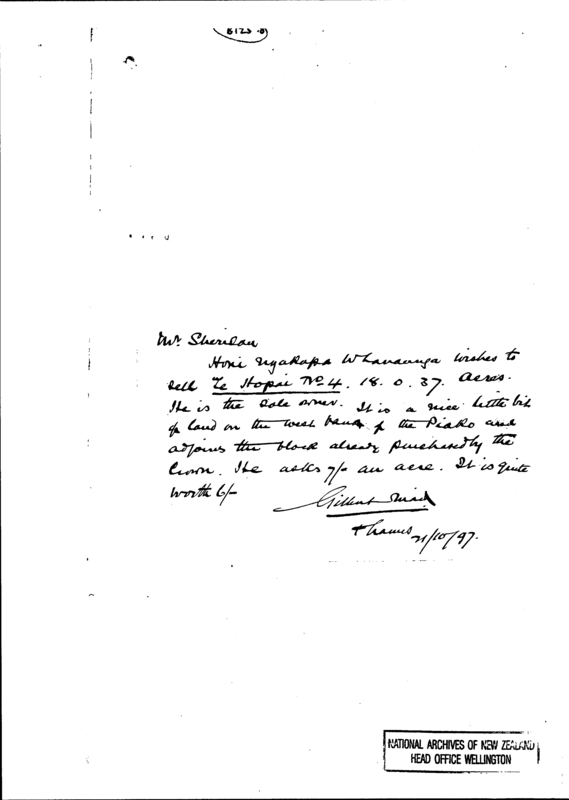 Mr Sheridan
Honi Ngakapa Whanaunga wishes to
sell Te Hopai No 4. 18. 0. 37. acres.
He is the sole owner. It is a nice little bit
of land on the west bank of the Piako and
adjoins the block already purchased by the
Crown. He asks 7/- an acre. It is quite
worth 6/-
Gilbert Mair
Thames 21/10/97.
NATIONAL ARCHIVES OF NEW ZEALAND
HEAD OFFICE WELLINGTON